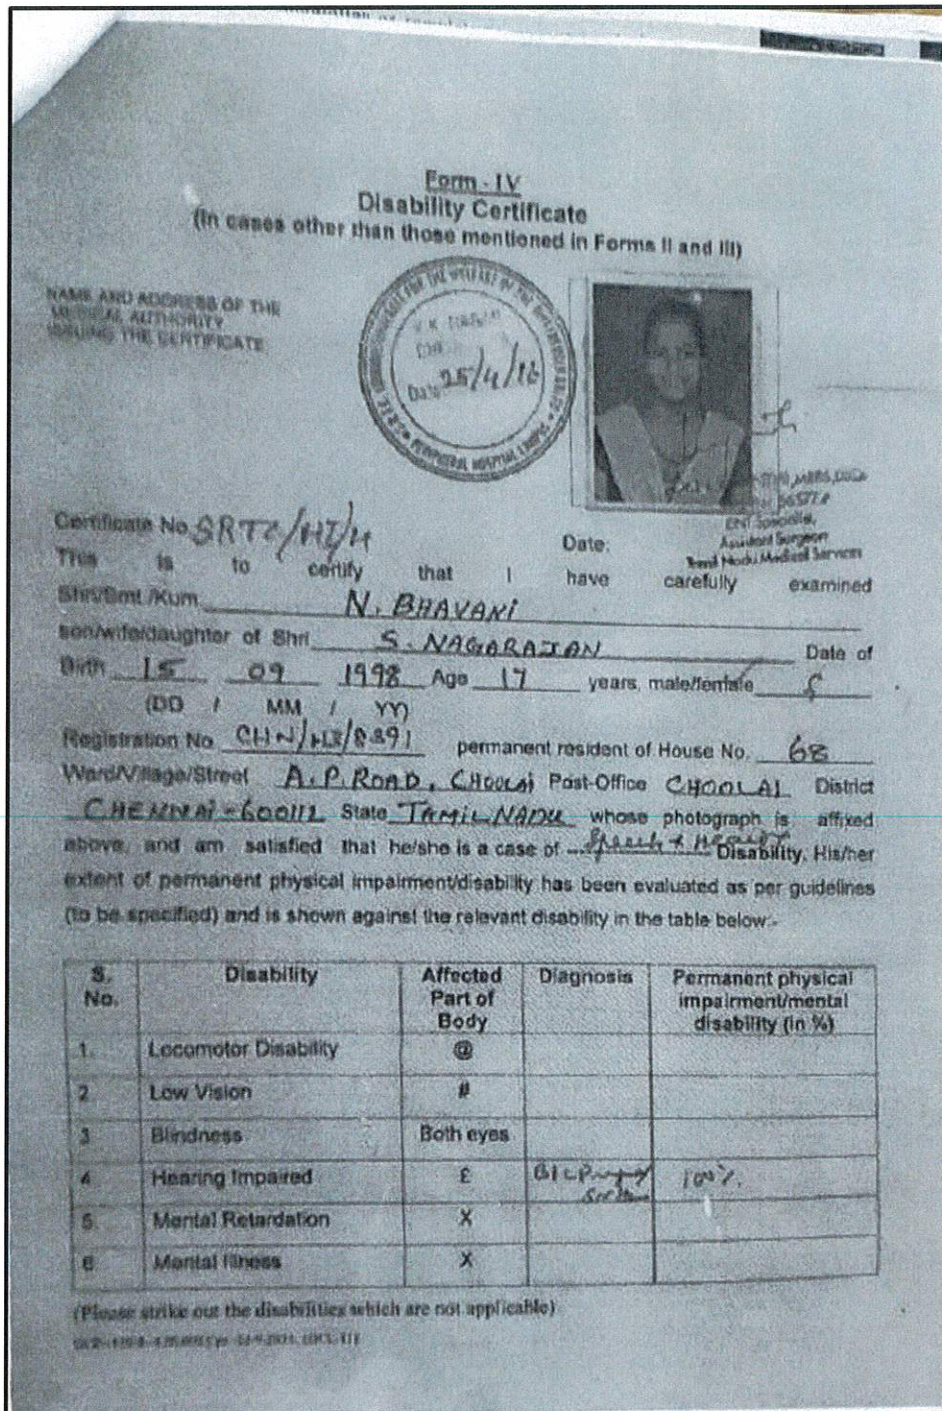 Form - IV
Disability Certificate
(In cases other than those mentioned in Forms II and III)
NAME AND ADDRESS OF THE
MEDICAL AUTHORITY
ISSUING THE CERTIFICATE
FOR THE WELFARE OF THE
PERIPHERAL HOSPITAL
Date 25/4/16
MBBS,
ENT Specialist,
Assistant Surgeon
Tamil Nadu Medical Services
Certificate No SRTC/HI/4
Date:
This is to certify that I have carefully examined
Shri/Smt./Kum N. BHAVANI
son/wife/daughter of Shri S. NAGARAJAN Date of
Birth 15 09 1998 Age 17 years, male/female f
(DD / MM / YY)
Registration No permanent resident of House No. 68
Ward/Village/Street A.P. ROAD, CHOOLAI Post-Office CHOOLAI District
CHENNAI - 600112 State TAMIL NADU whose photograph is affixed
above, and am satisfied that he/she is a case of Speech & Hearing Disability. His/her
extent of permanent physical impairment/disability has been evaluated as per guidelines
(to be specified) and is shown against the relevant disability in the table below:-
S. No. Disability Affected Part of Body Diagnosis Permanent physical impairment/mental disability (in %)
1. Locomotor Disability @
2 Low Vision #
3 Blindness Both eyes
4. Hearing Impaired £ 100%.
5. Mental Retardation X
6 Mental Illness X
(Please strike out the disabilities which are not applicable)